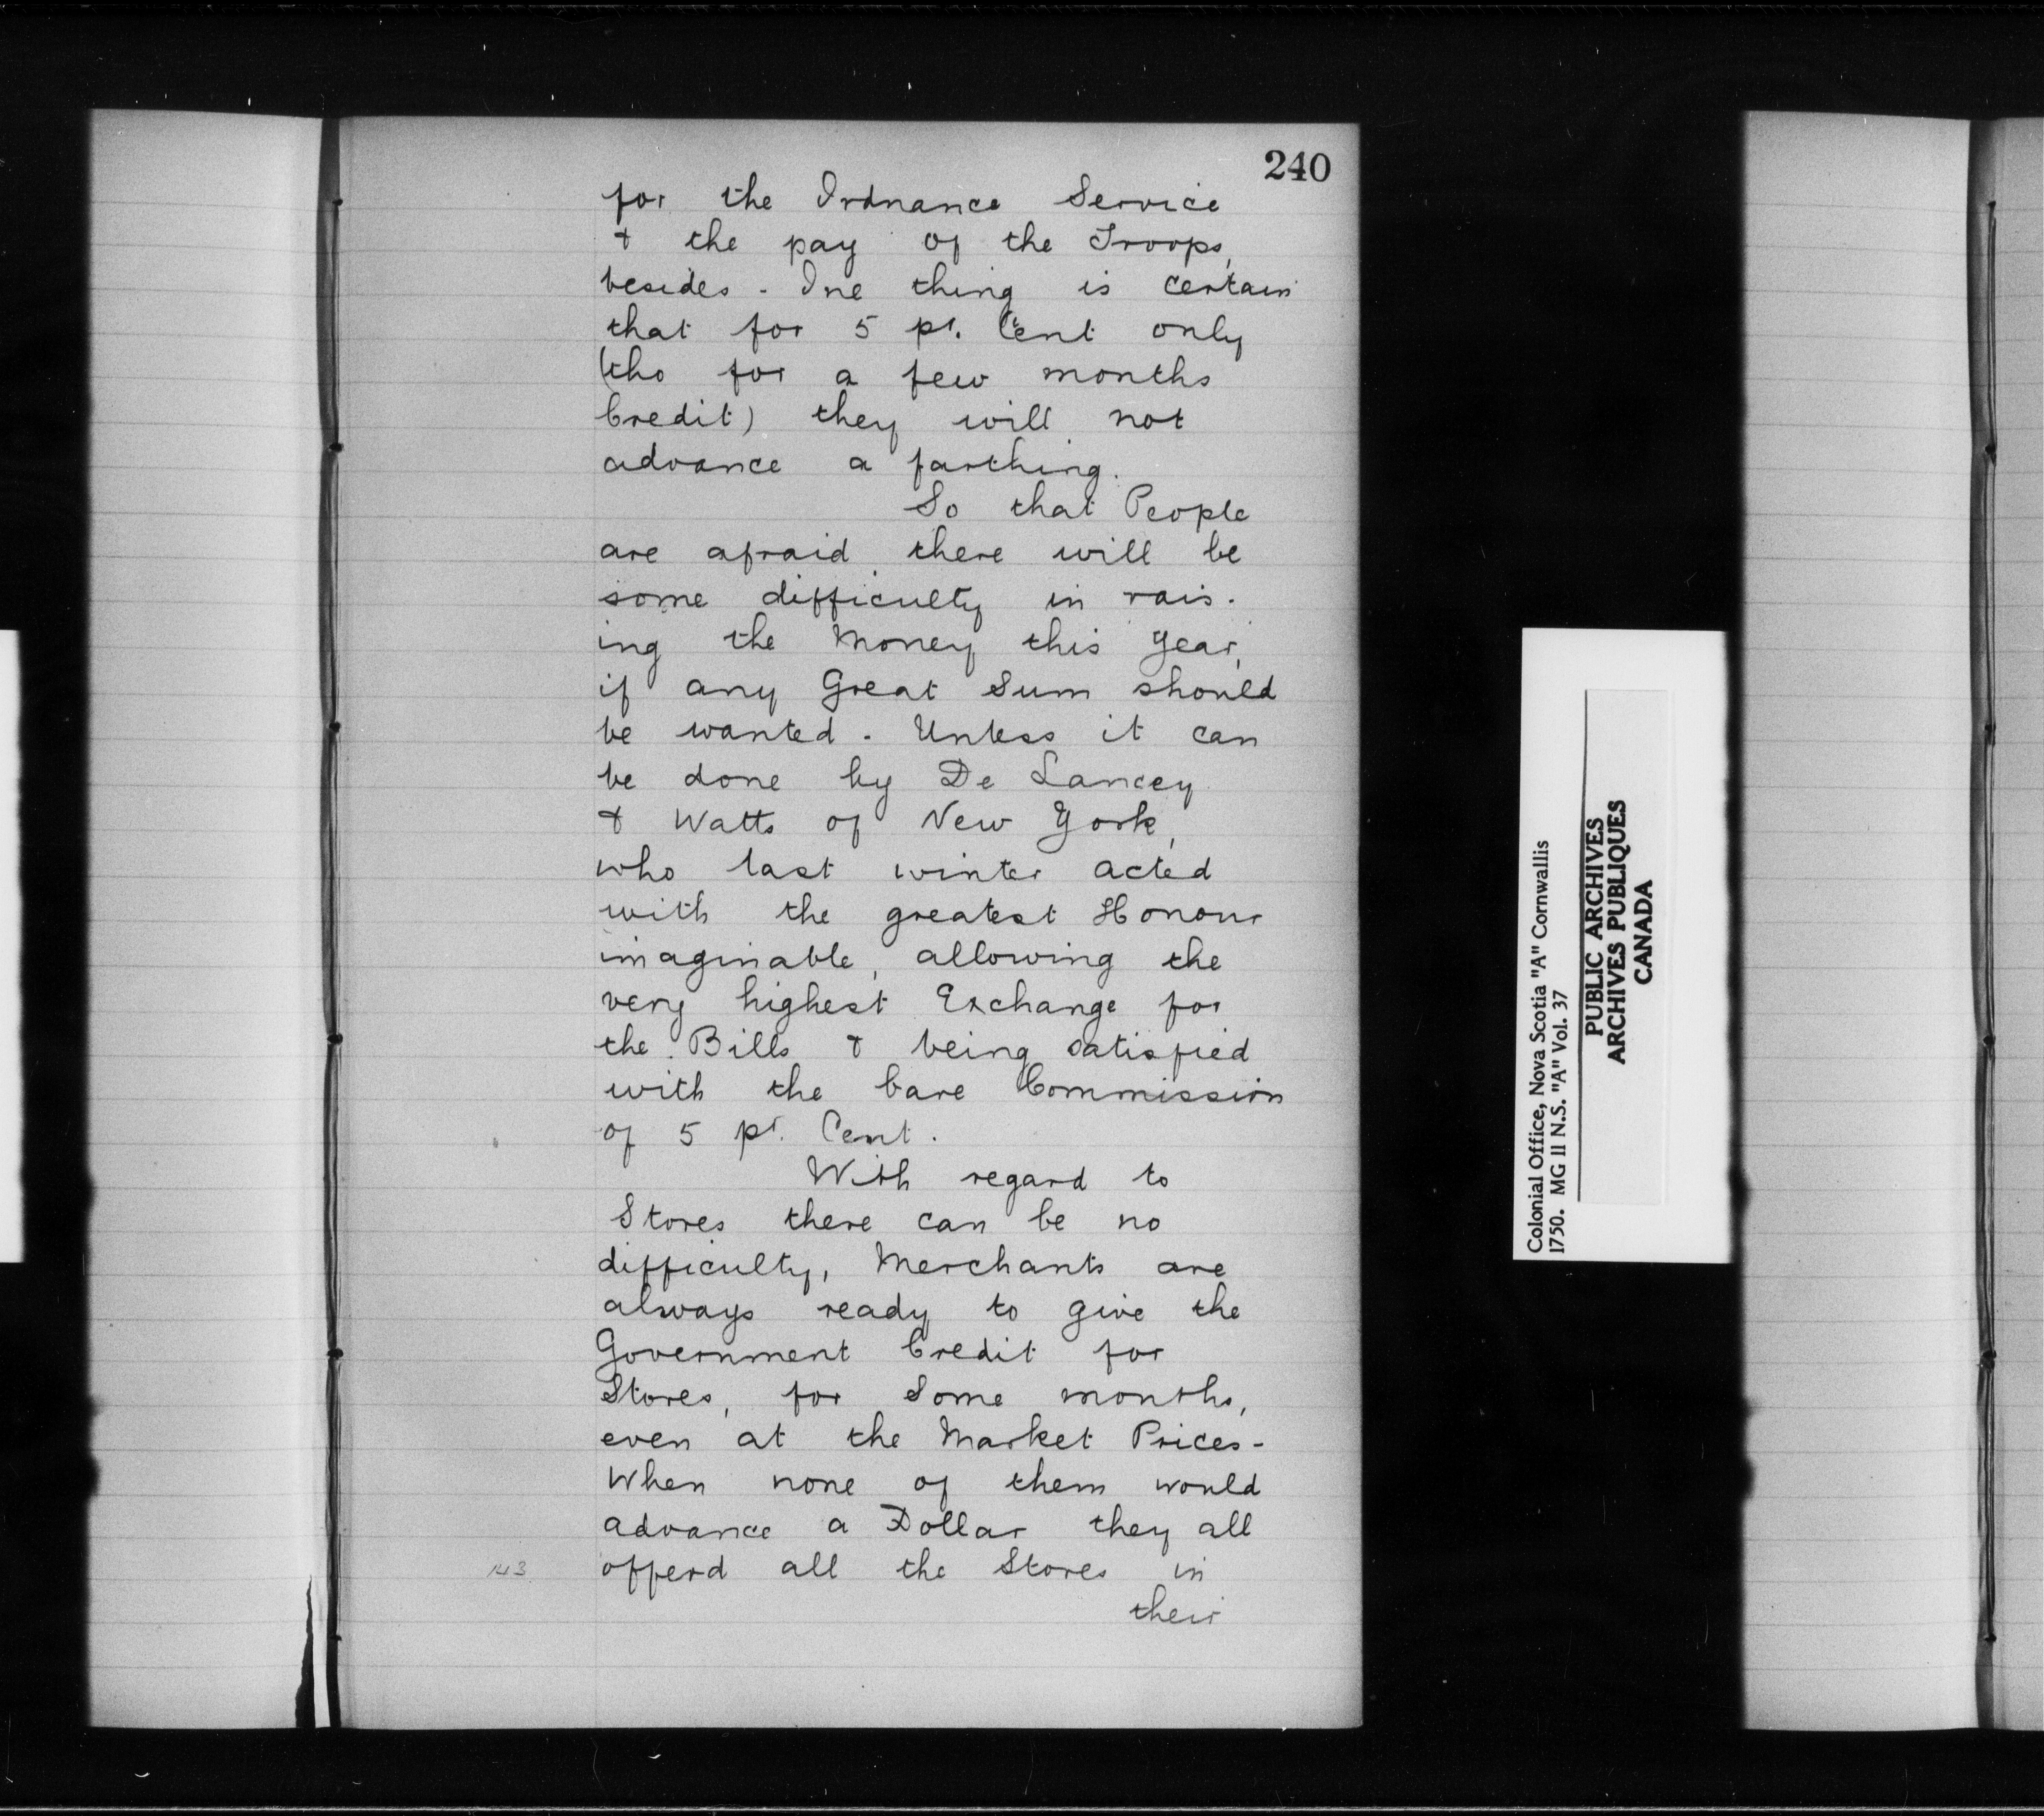 240
for the Ordnance Service
& the pay of the Troops,
besides - One thing is certain
that for 5 pr. Cent only
(tho for a few months
Credit) they will not
advance a farthing.
So that People
are afraid there will be
some difficulty in rais-
ing the Money this Year,
if any Great Sum should
be wanted - Unless it can
be done by De Lancey
& Watts of New York,
who last winter acted
with the greatest Honour
imaginable, allowing the
very highest Exchange for
the Bills & being satisfied
with the bare Commission
of 5 pr. Cent.
With regard to
Stores there can be no
difficulty, Merchants are
always ready to give the
Government Credit for
Stores, for Some months,
even at the Market Prices -
When none of them would
advance a Dollar they all
offerd all the Stores in
143
their
Colonial Office, Nova Scotia "A" Cornwallis
1750. MG 11 N.S. "A" Vol. 37
PUBLIC ARCHIVES
ARCHIVES PUBLIQUES
CANADA